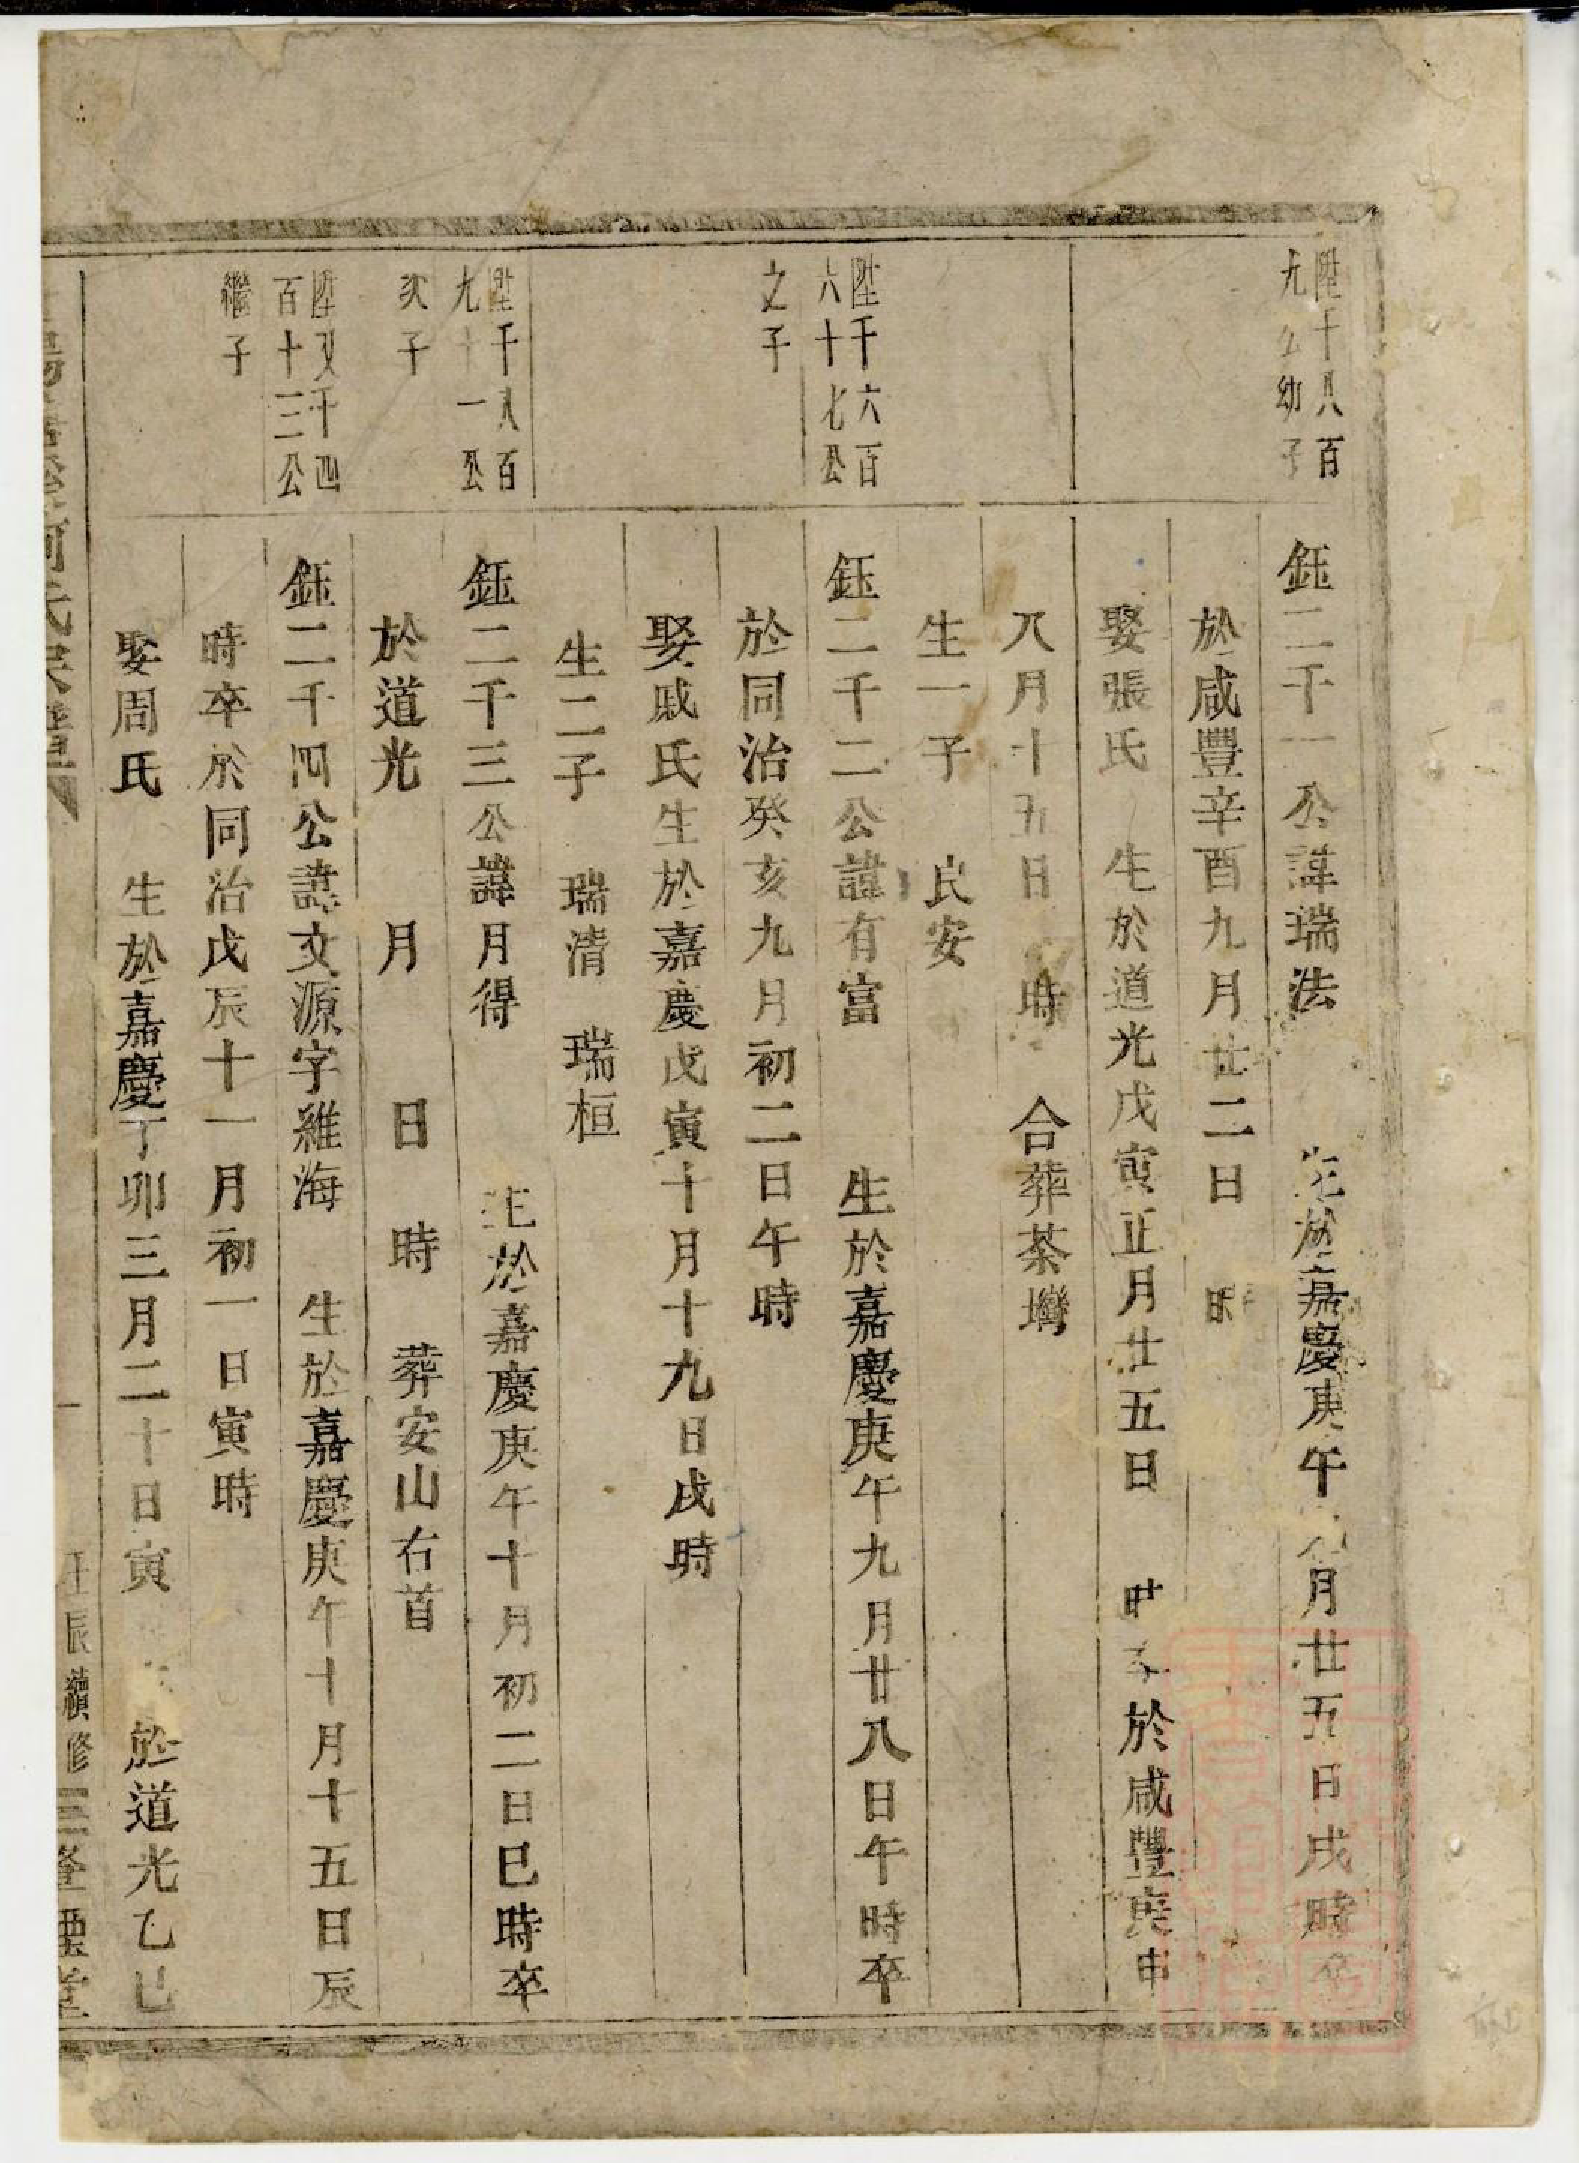 陞千八百
九公幼子
鈺二千一公諱瑞法 生於嘉慶庚午月廿五日戌時卒
於咸豐辛酉九月廿二日 時
娶張氏 生於道光戊寅正月廿五日 時卒於咸豐庚申
八月十五日 時 合葬茶灣
生一子 良安
陞千六百
六十七公
之子
鈺二千二公諱有富 生於嘉慶庚午九月廿八日午時卒
於同治癸亥九月初二日午時
娶戚氏生於嘉慶戊寅十月十九日戌時
生二子 瑞清 瑞桓
陞千八百
九十一公
次子
鈺二千三公諱月得 生於嘉慶庚午十月初二日巳時卒
於道光 月 日 時 葬安山右首
陞又千四
百十三公
繼子
鈺二千四公諱文源字維海 生於嘉慶庚午十月十五日辰
時卒於同治戊辰十一月初一日寅時
娶周氏 生於嘉慶丁卯三月二十日寅 於道光乙巳
續修三 堂